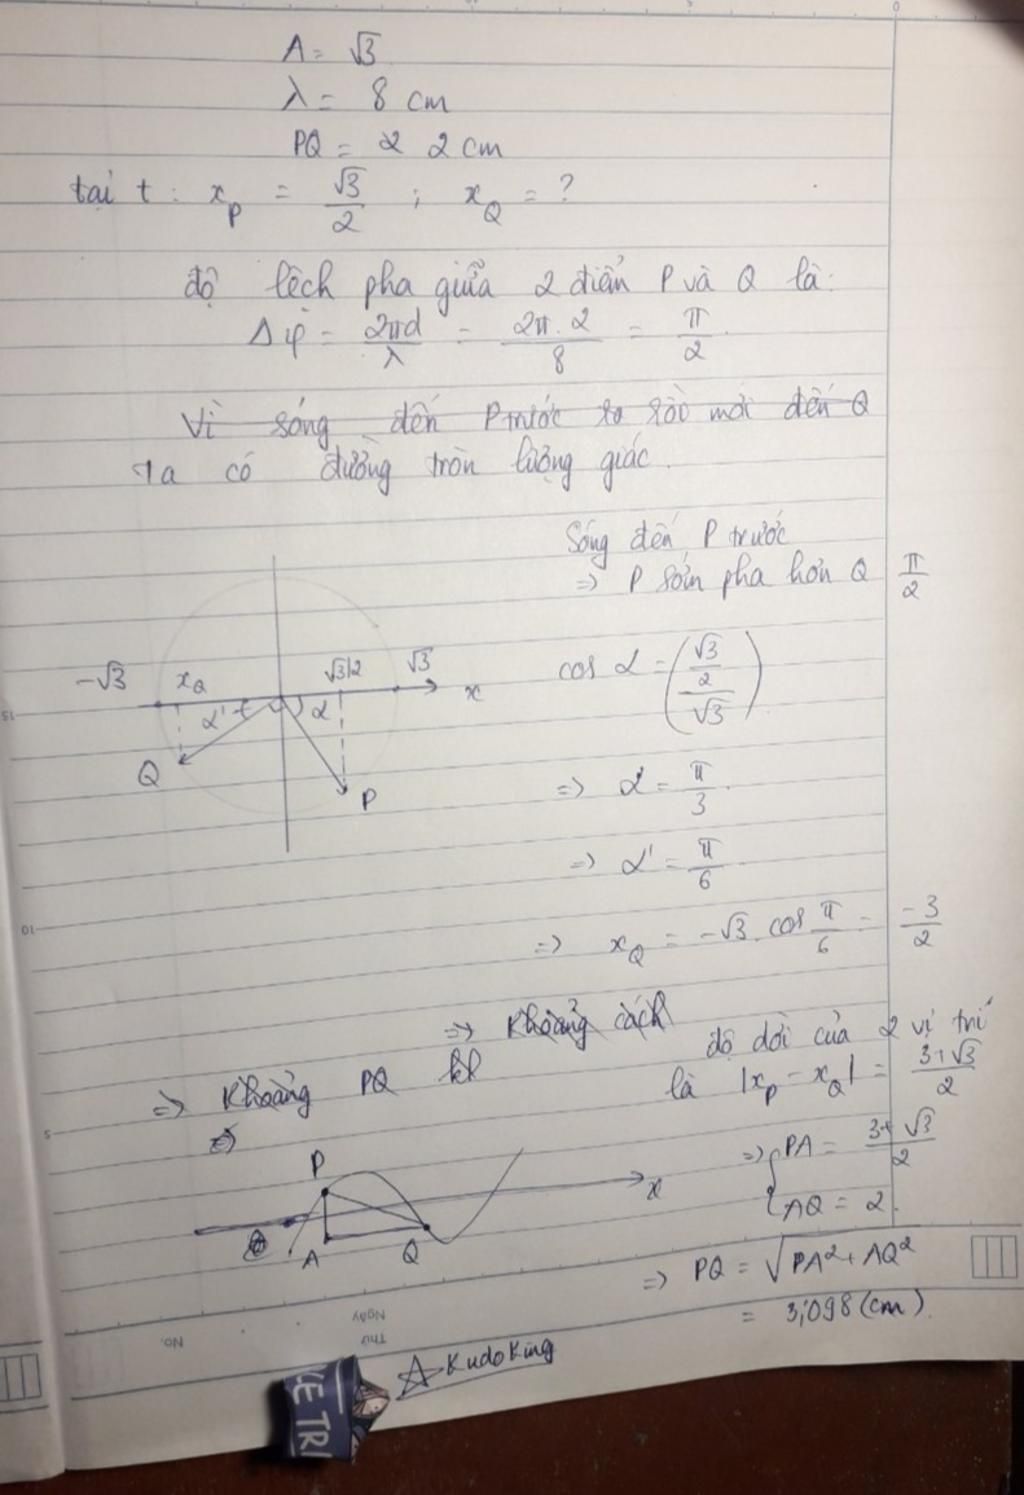 A = √3
λ = 8 cm
PQ = 2 2 cm
tại t: x_P = √3/2 ; x_Q = ?
độ lệch pha giữa 2 điểm P và Q là:
Δφ = 2πd/λ = 2π.2/8 = π/2.
Vì sóng đến P trước rồi mới đến Q
Ta có đường tròn lượng giác.
Sóng đến P trước
=> P sớm pha hơn Q π/2
-√3 x_Q √3/2 √3 x
α' α
Q P
cos α = (√3/2 / √3)
=> α = π/3.
=> α' = π/6
=> x_Q = -√3.cos π/6 = -3/2
=> Khoảng cách
độ dời của 2 vị trí
là |x_P - x_Q| = 3+√3/2
=> Khoảng PQ
=>
P x
A Q
=> { PA = 3+√3/2
AQ = 2.
=> PQ = √PA² + AQ²
= 3,098 (cm).
KudoKing
No.
Thứ
Ngày
CE TRI
0
5
10
15